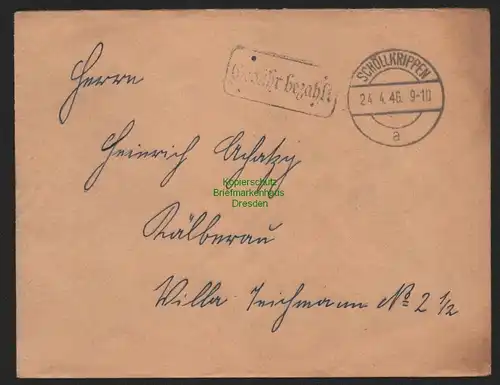 Gebühr bezahlt
SCHÖLLKRIPPEN
24.4.46. 9-10
a
Herrn
Heinrich Achatzy
Kopierschutz
Briefmarkenhaus
Dresden
Kälberau
Villa Teichmann No 2 1/2